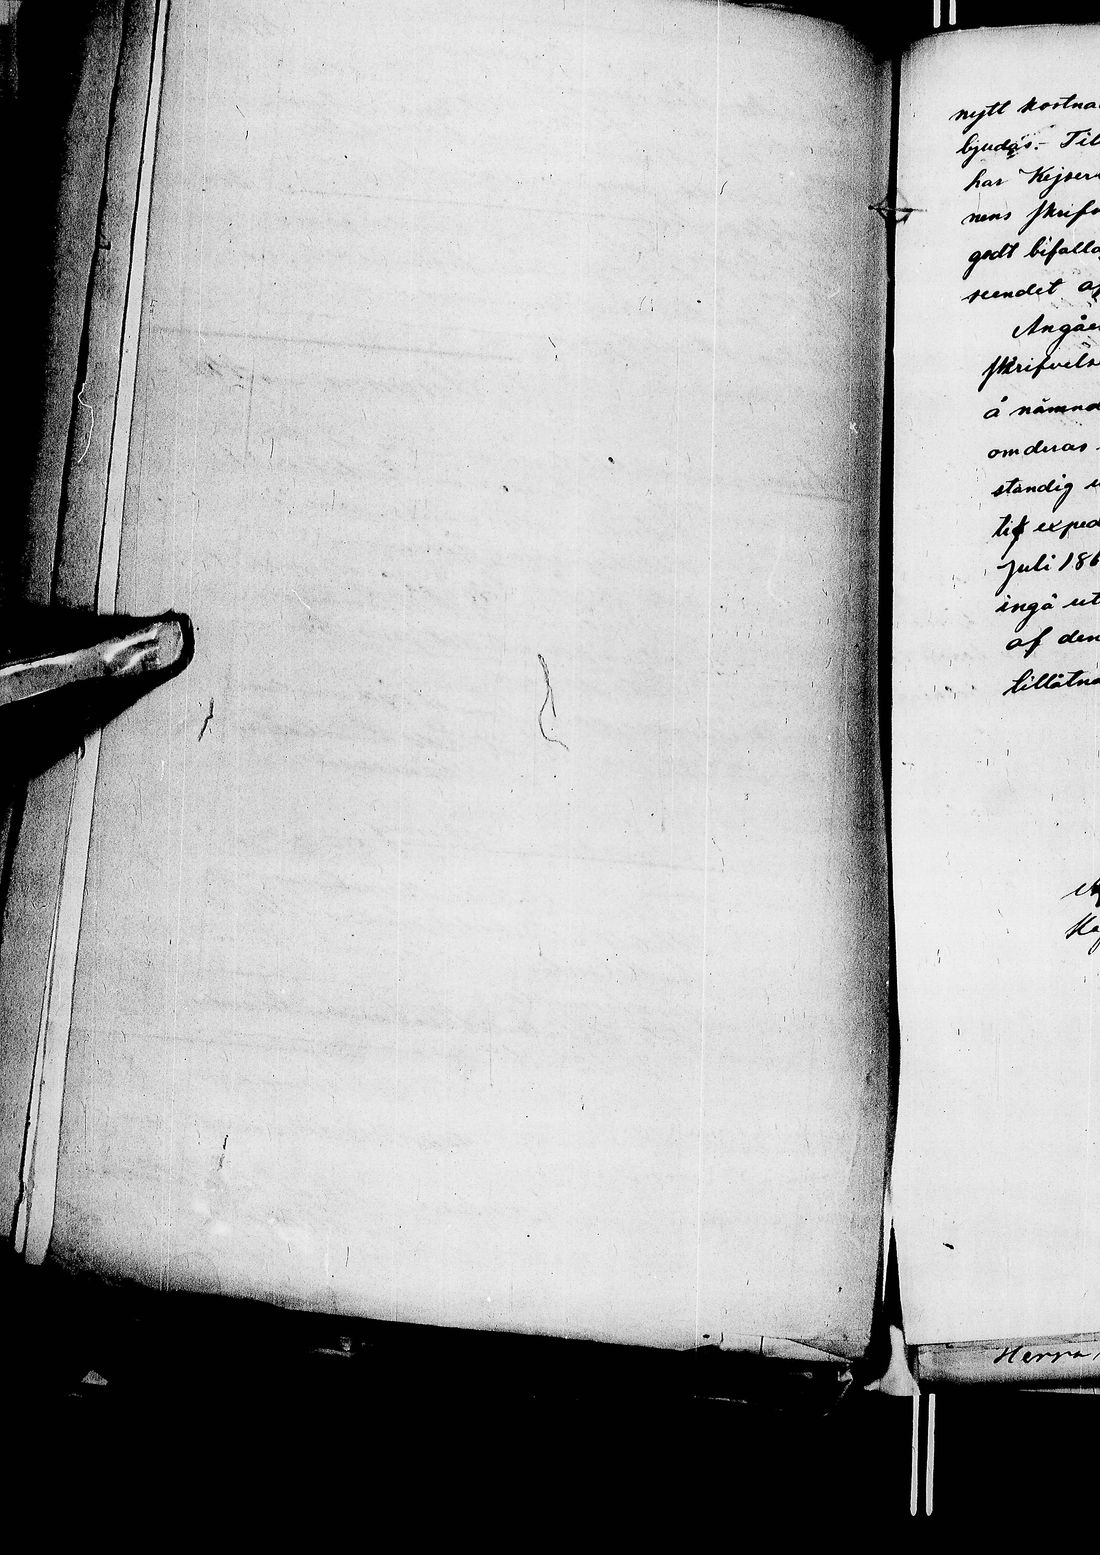 nytt kostna
bjudas. Til
har Kejser
nens skrif
godt bifalla
seendet af
Angåe
skrifvels
å nämnd
omderas
ständig u
till exped
Juli 186
ingå ut
af den
tillåtna
Herra